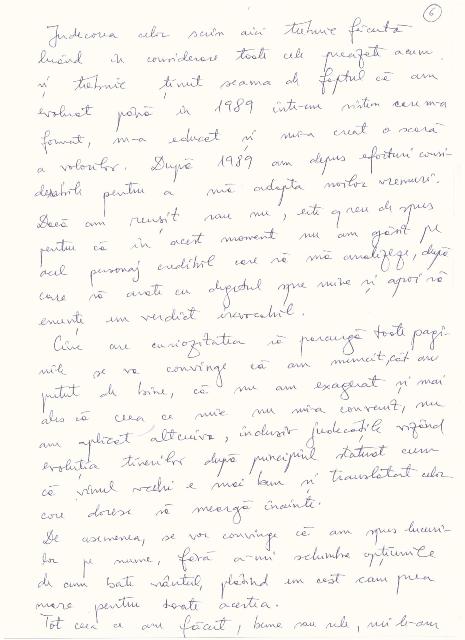 6
Judecarea celor scrise aici trebuie făcută
luând în considerare toate cele prezentate acum
și trebuie ținut seama de faptul că am
evoluat până în 1989 într-un sistem care m-a
format, m-a educat și mi-a creat o scară
a valorilor. După 1989 am depus eforturi consi-
derabile pentru a mă adapta noilor vremuri.
Dacă am reușit sau nu, este greu de spus
pentru că în acest moment nu am găsit pe
acel personaj credibil care să mă analizeze, după
care să arate cu degetul spre mine și apoi să
enunțe un verdict irevocabil.
Cine are curiozitatea să parcurgă toate pagi-
nile se va convinge că am muncit, cât am
putut de bine, că nu am exagerat și mai
ales că ceea ce mie nu mi-a convenit, nu
am aplicat altcuiva, inclusiv judecățile vizând
evoluția tinerilor după principiul statuat cum
că vinul vechi e mai bun și translatat celor
care doresc să meargă înainte.
De asemenea, se vor convinge că am spus lucuri-
lor pe nume, fără a-mi schimba opțiunile
de cum bate vântul, plătind un cost cam prea
mare pentru toate acestea.
Tot ceea ce am făcut, bune sau rele, mi le-am